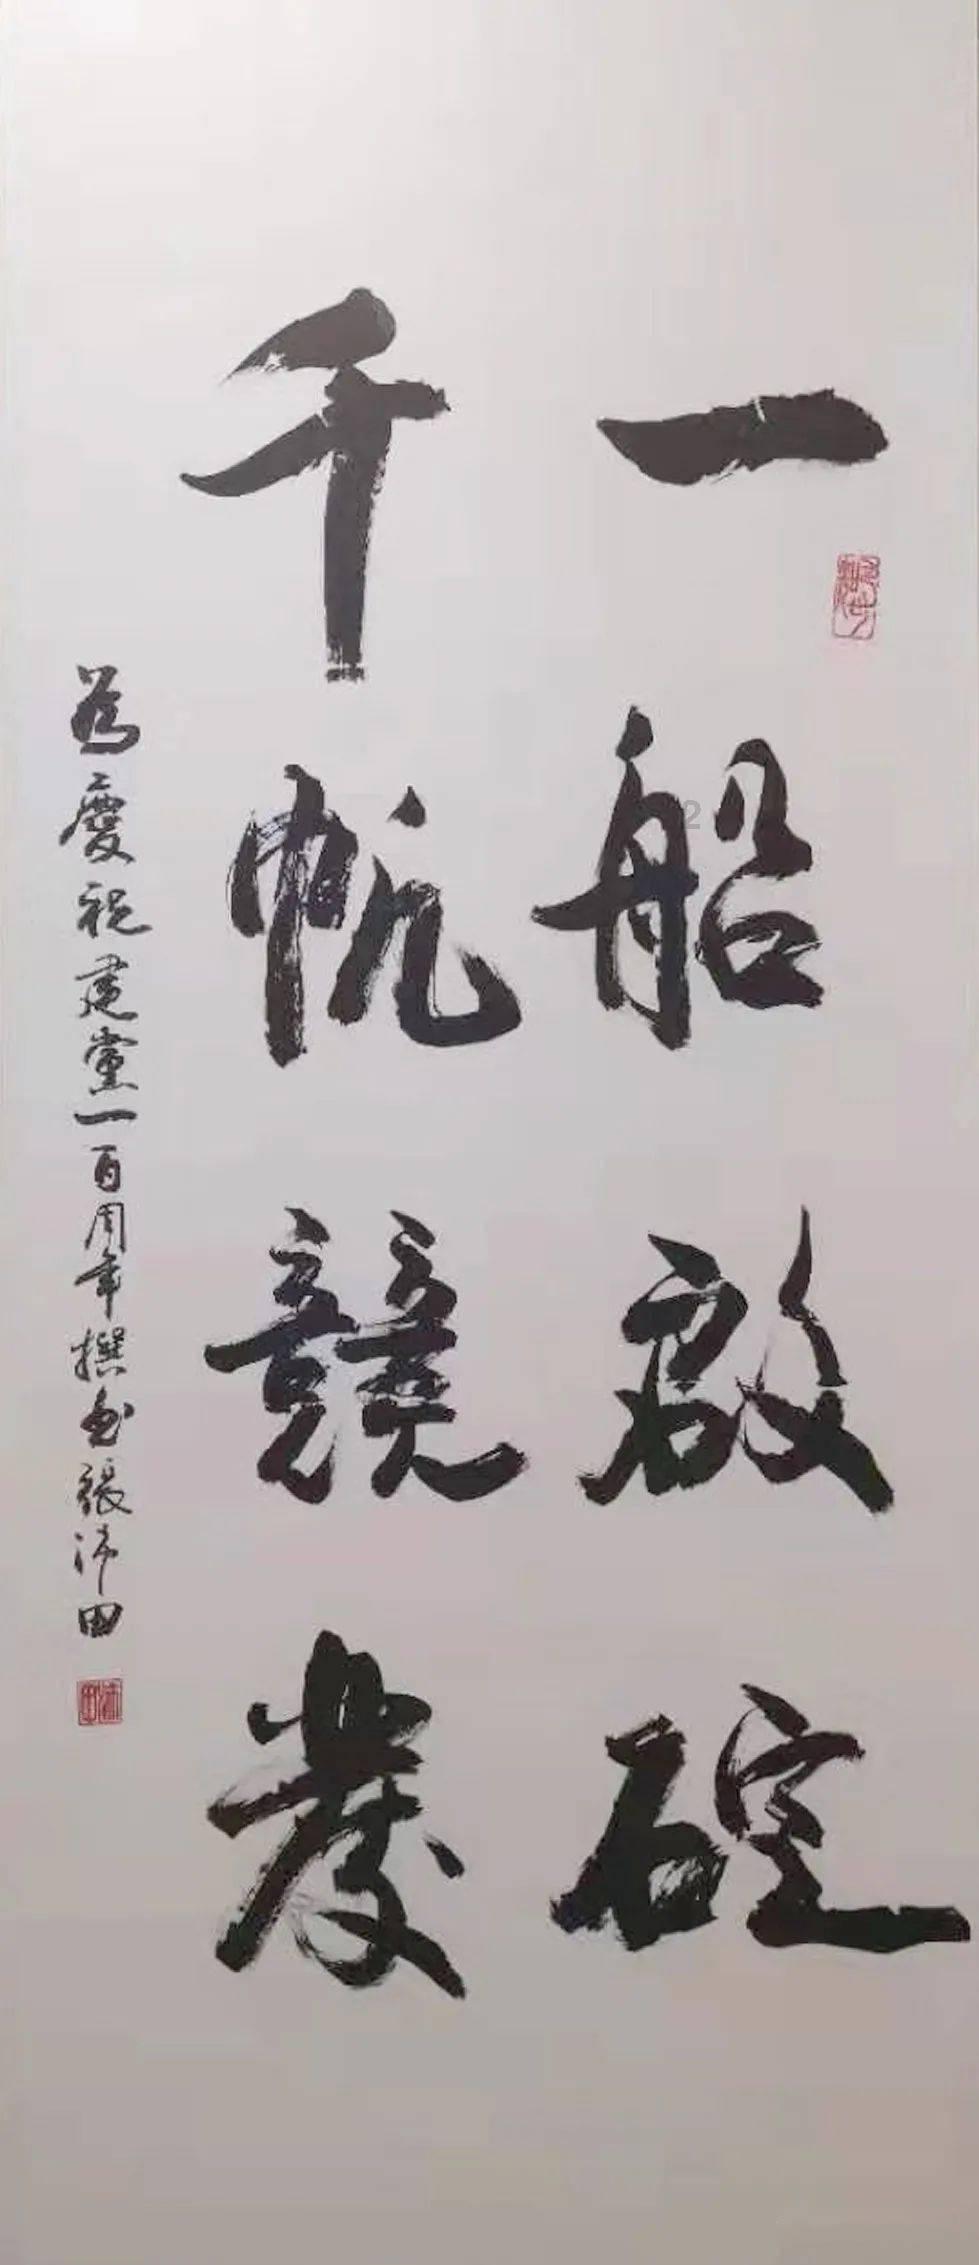 一船啟碇
千帆競發
為慶祝建黨一百周年撰 張沛田